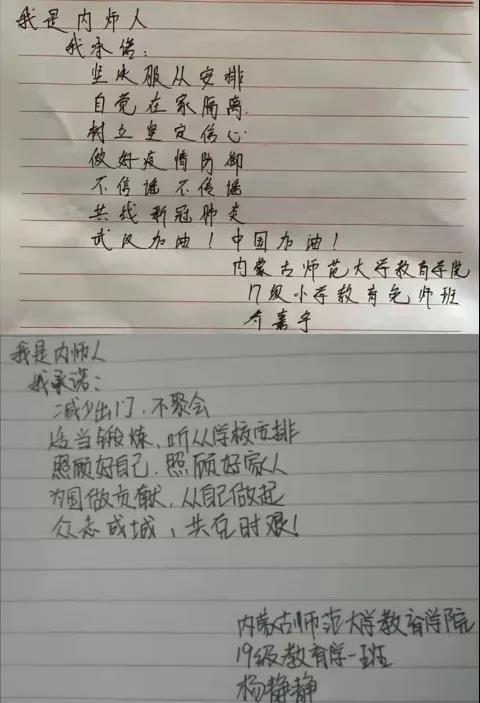 我是内师人
我承诺：
坚决服从安排
自觉在家隔离
树立坚定信心
做好疫情防御
不信谣不传谣
共战新冠肺炎
武汉加油！中国加油！
内蒙古师范大学教育学院
17级小学教育免师班
嘉宇
我是内师人
我承诺：
减少出门，不聚会
适当锻炼，听从学校安排
照顾好自己，照顾好家人
为国做贡献，从自己做起
众志成城，共克时艰！
内蒙古师范大学教育学院
19级教育学一班
杨静静